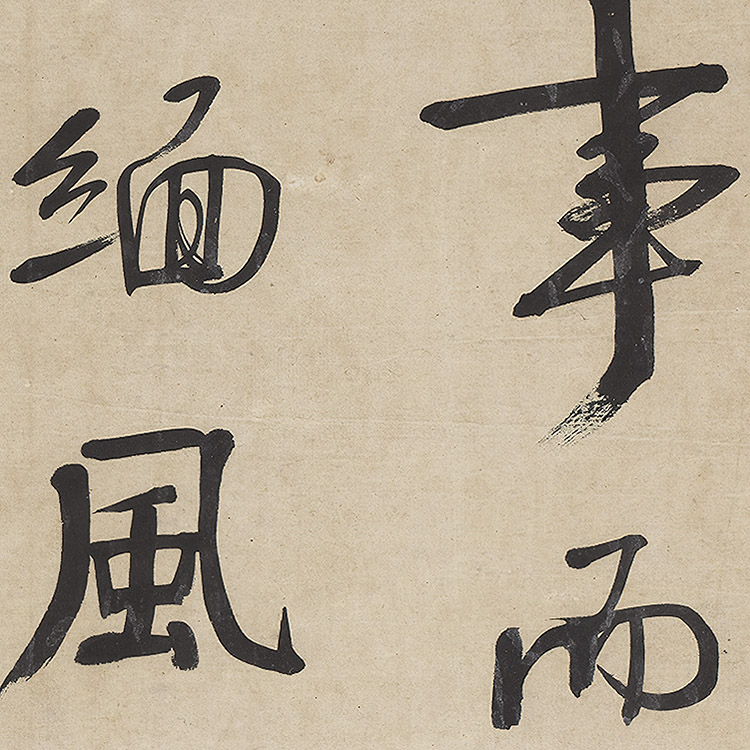 事而
緬風